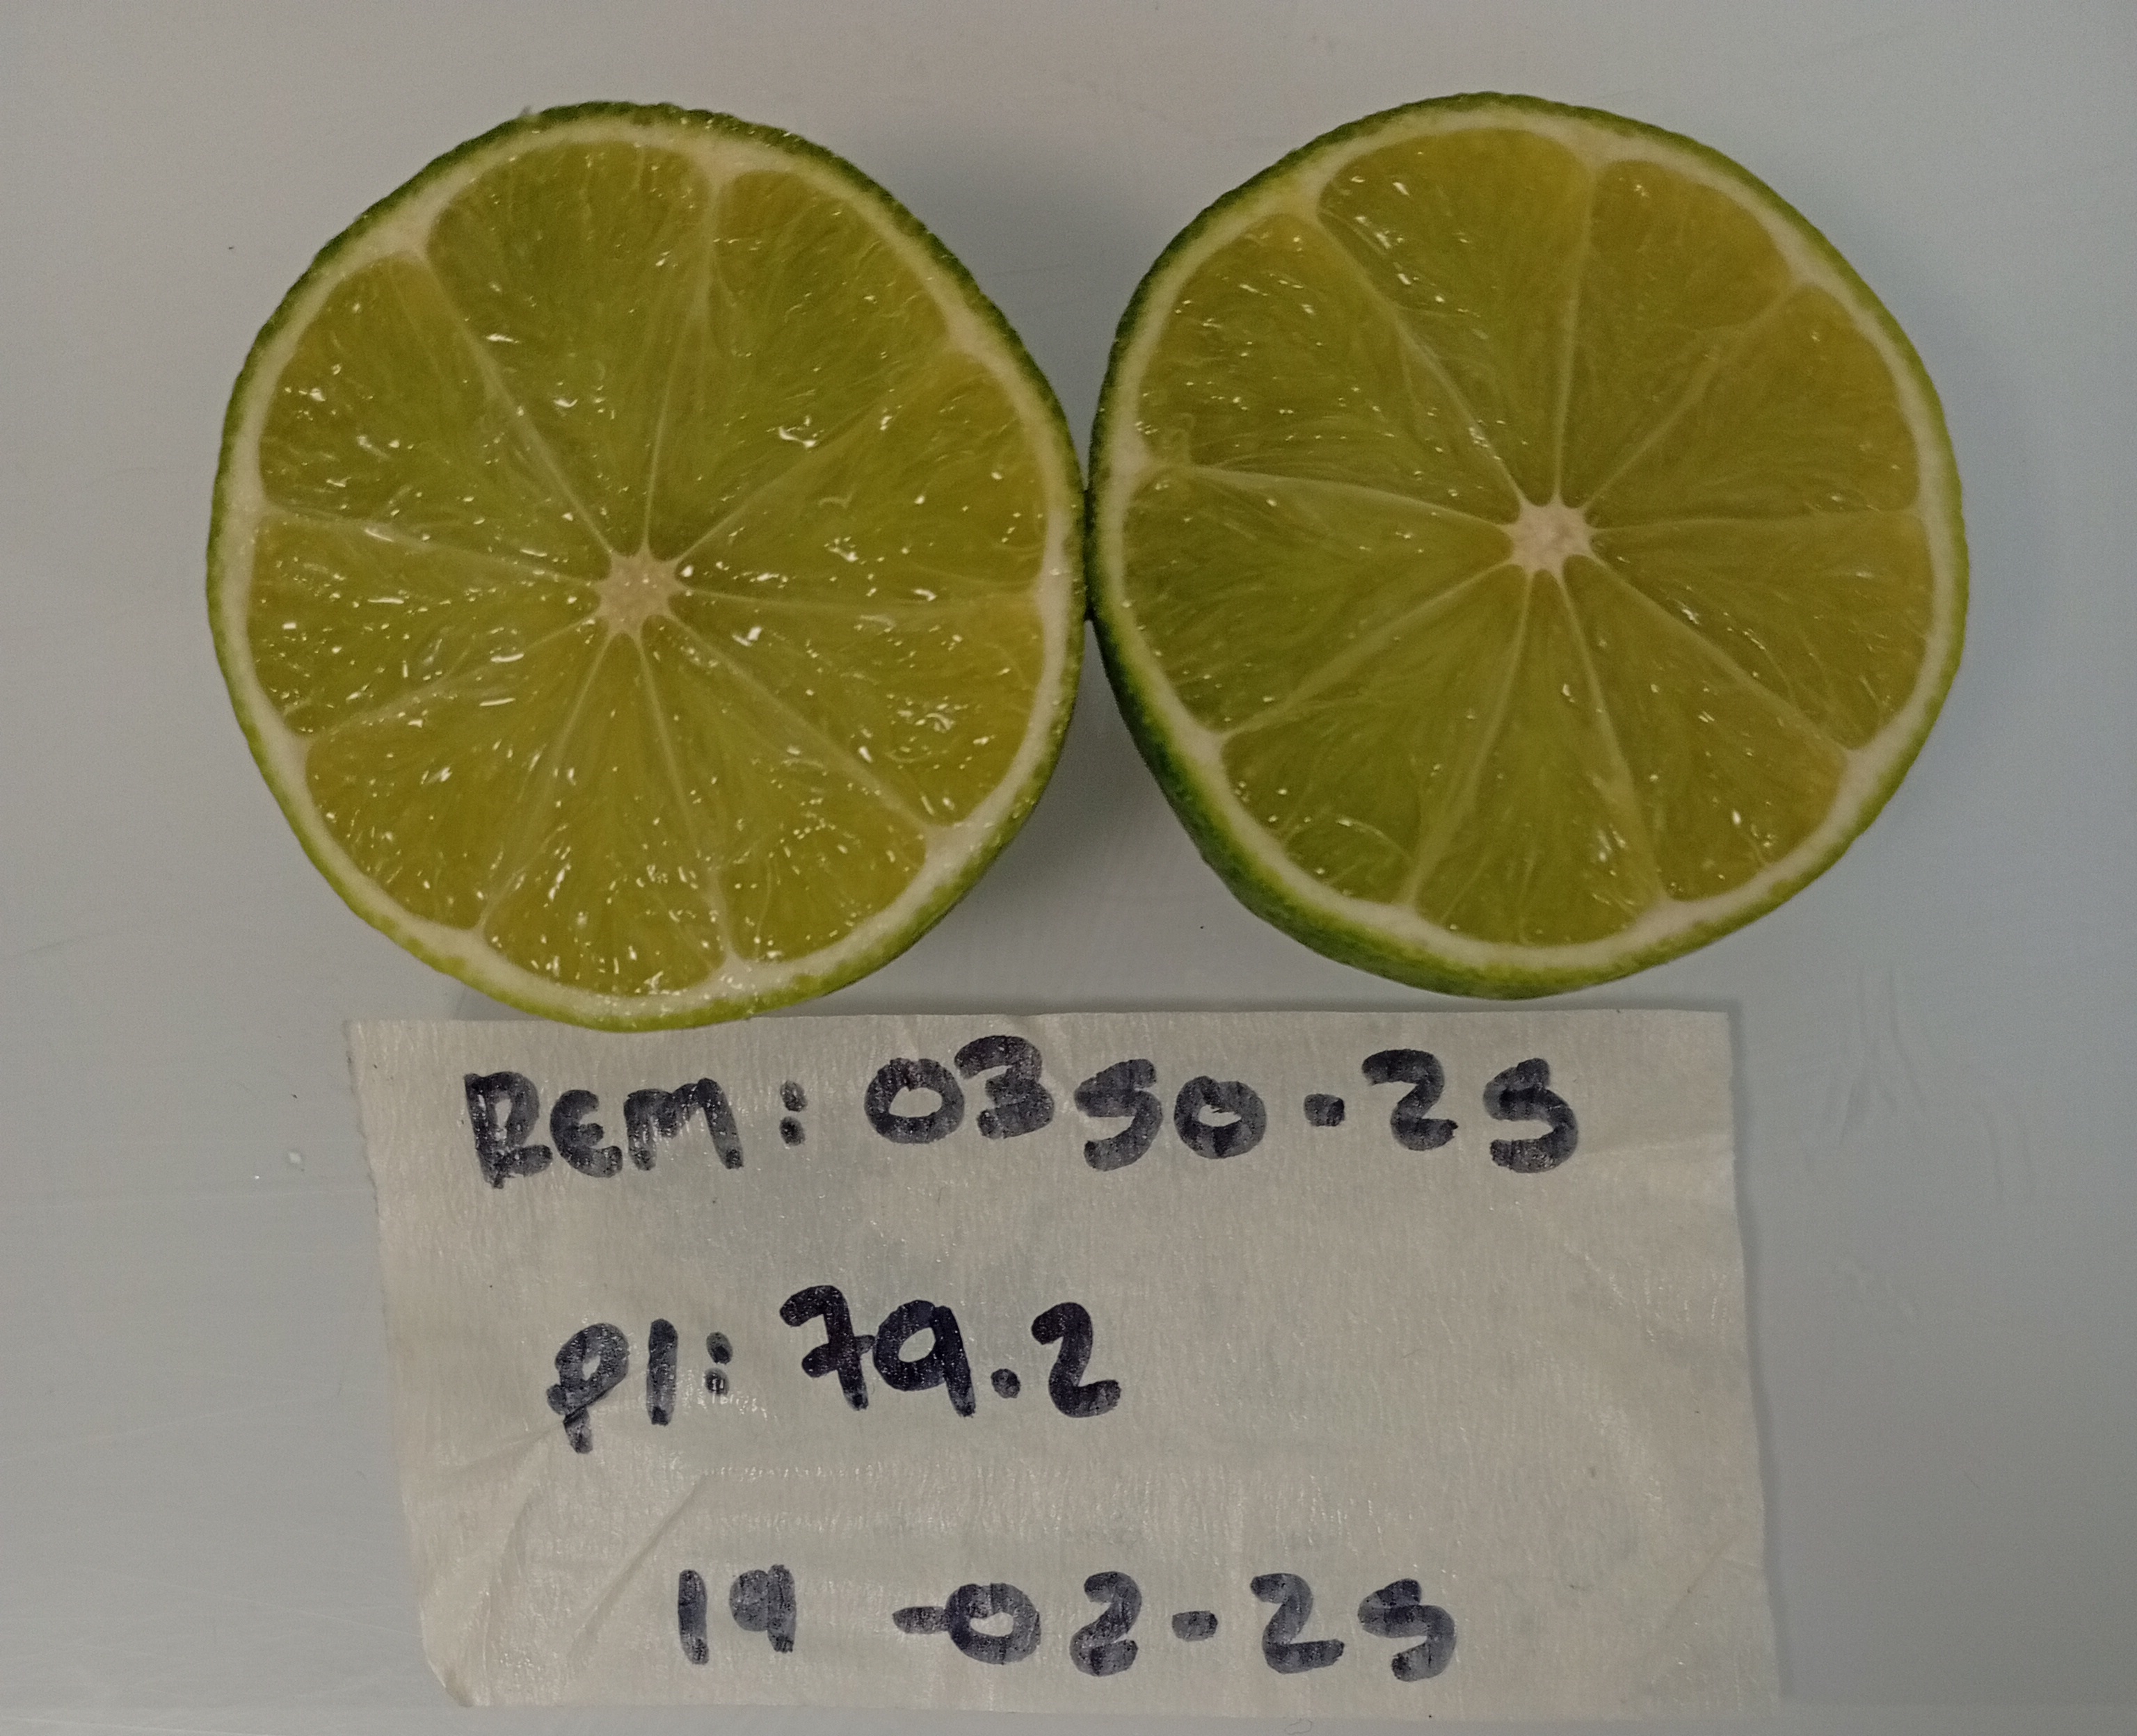 REM: 0350-25
PI: 79.2
19-02-25